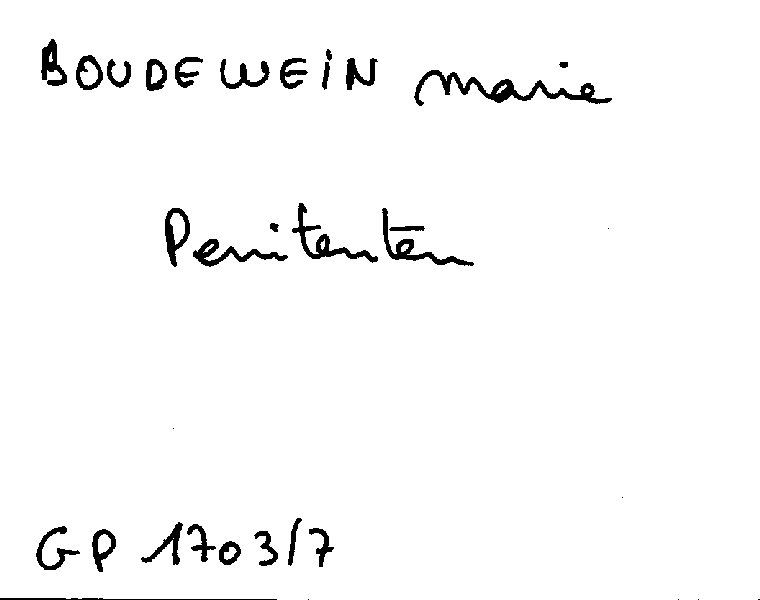 BOUDEWEIN marie
Penitenten
GP 1703/7